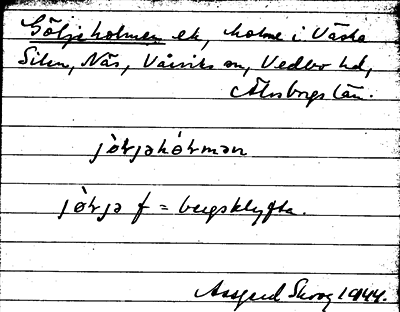 Göljeholmen ek, holme i Västa
Silen, Näs, Vårviks sn, Vedbo hd,
Älvsborgs län.
jòɽjəhóɽmən
jòɽjə f = bergsklyfta.
Assgerd Skoog 1944.